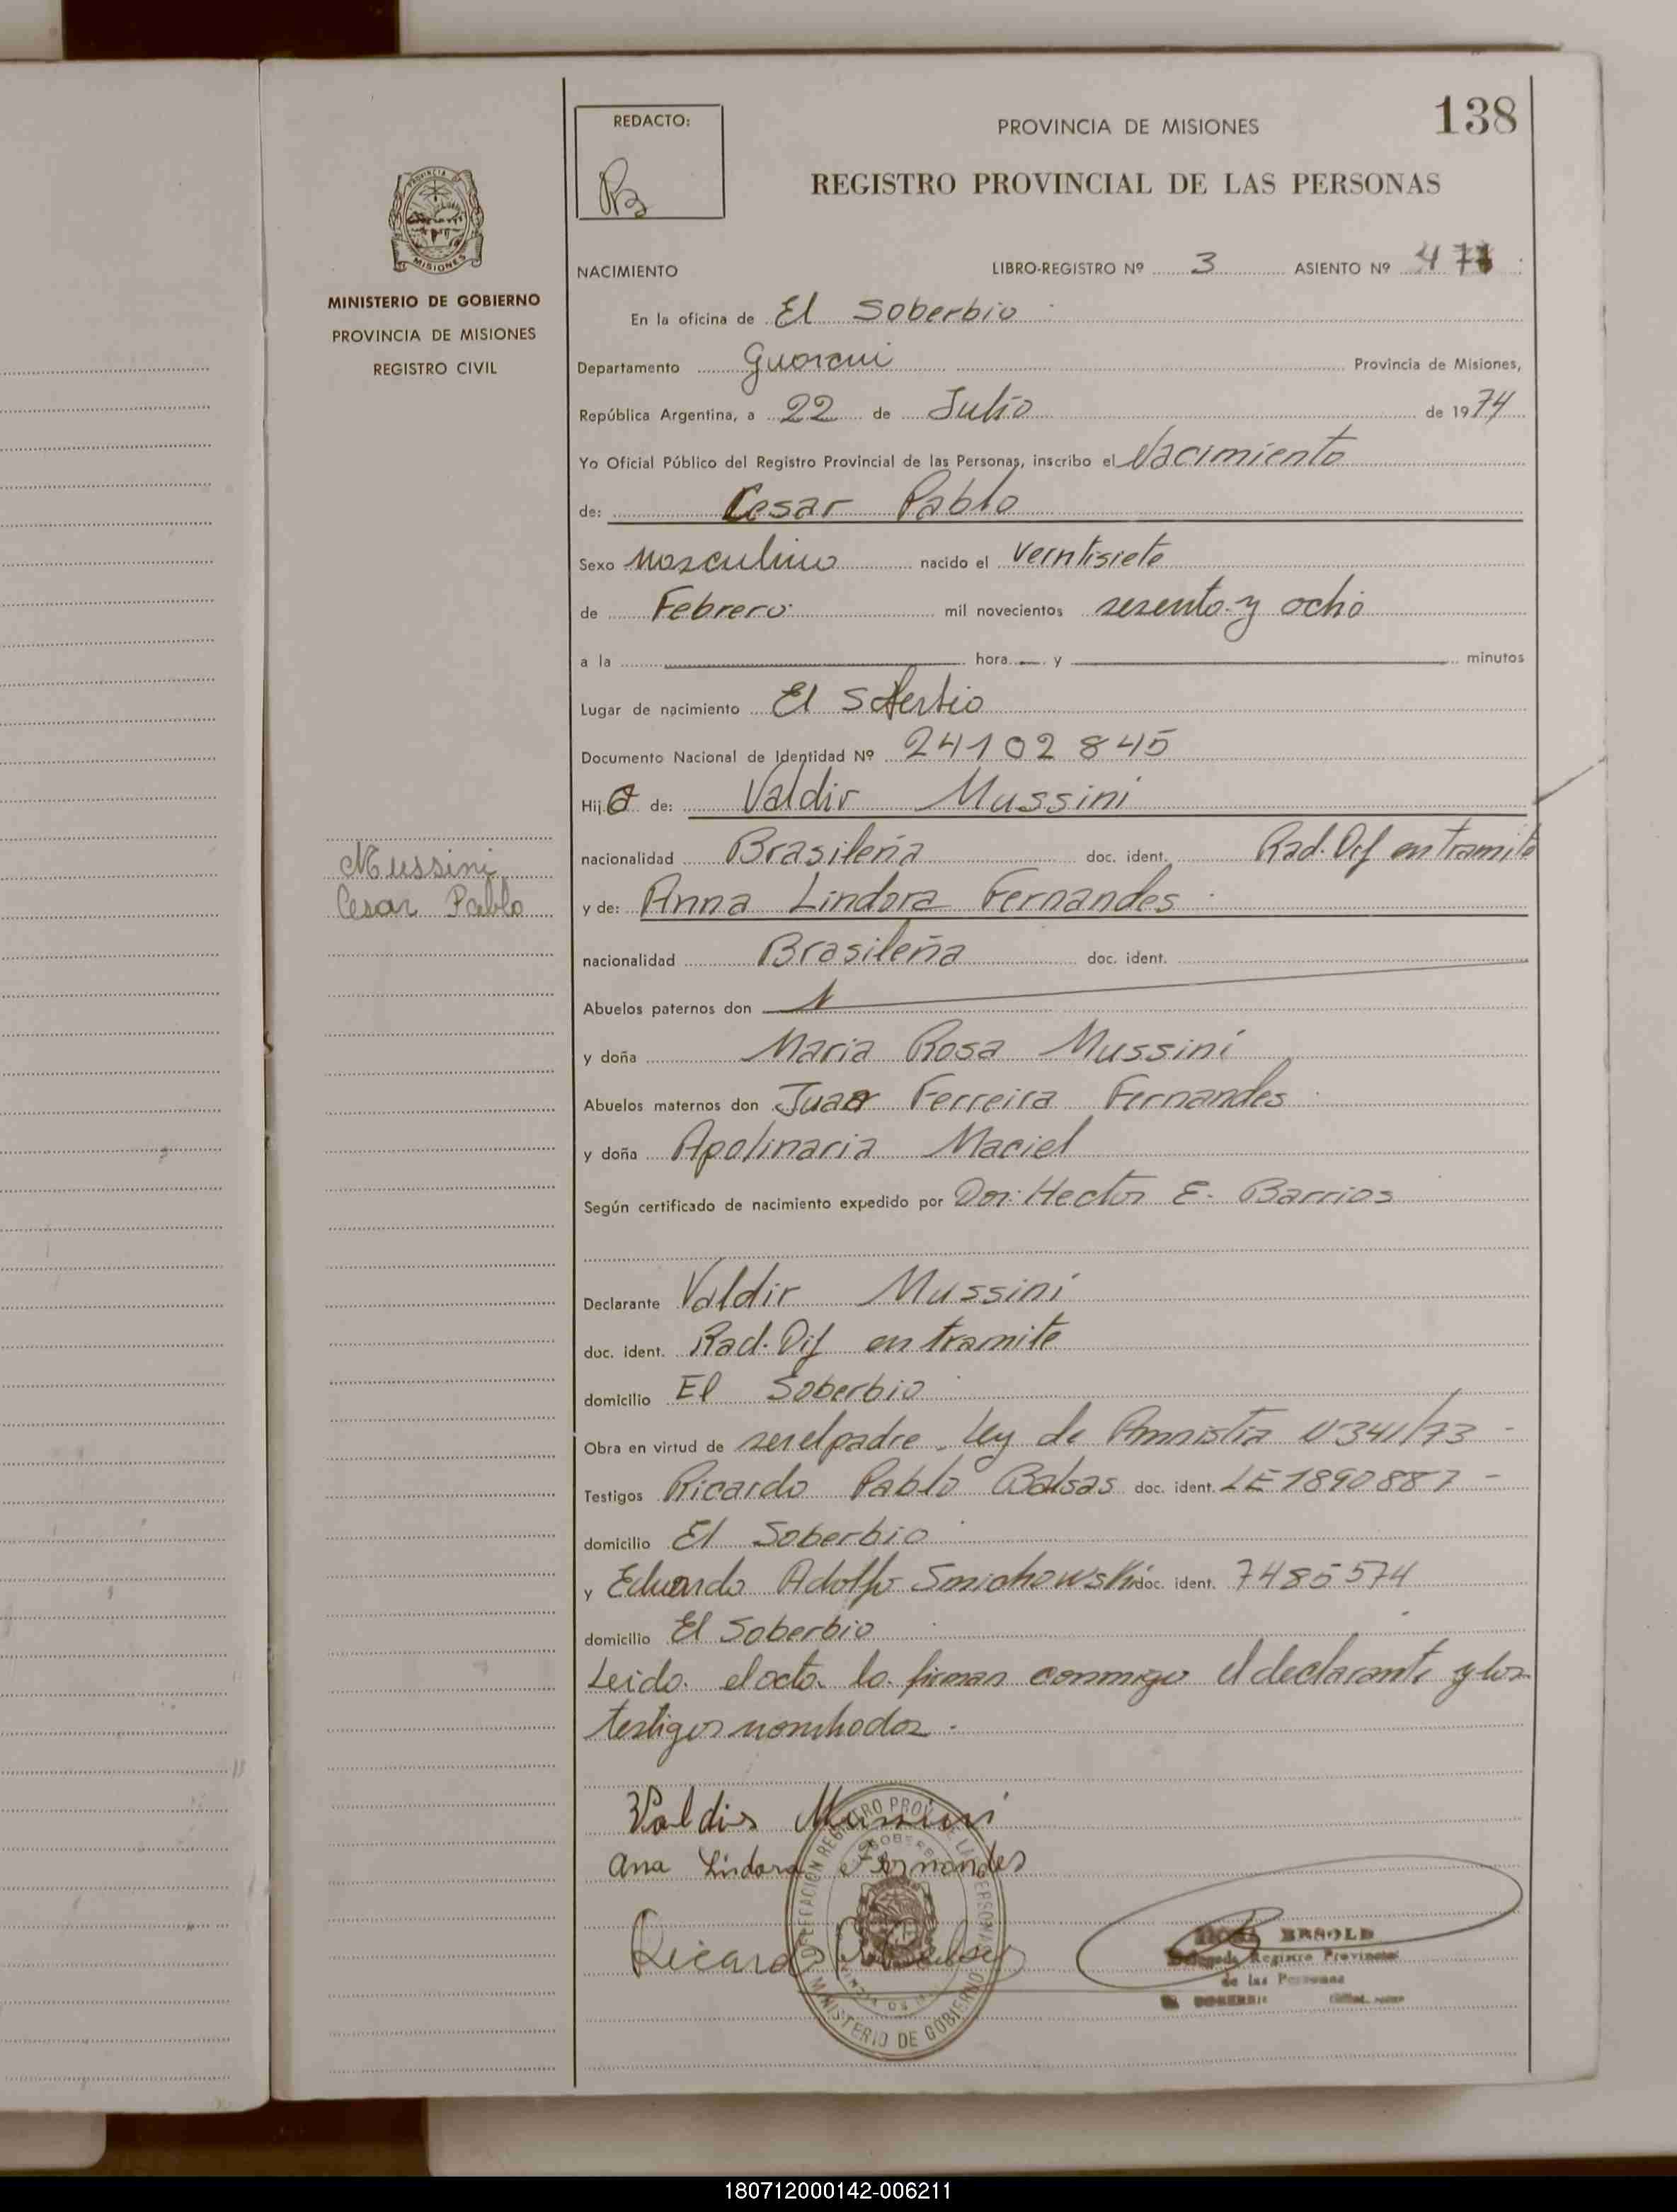 138
REDACTO:
PROVINCIA DE MISIONES
REGISTRO PROVINCIAL DE LAS PERSONAS
PROVINCIA DE
MISIONES
MINISTERIO DE GOBIERNO
PROVINCIA DE MISIONES
REGISTRO CIVIL
NACIMIENTO LIBRO-REGISTRO Nº 3 ASIENTO Nº 471
En la oficina de El Soberbio
Departamento Guarani Provincia de Misiones,
República Argentina, a 22 de Julio de 1974
Yo Oficial Público del Registro Provincial de las Personas, inscribo el Nacimiento
de: Cesar Pablo
Sexo Masculino nacido el Veintisiete
de Febrero mil novecientos sesenta y ocho
a la hora y minutos
Lugar de nacimiento El Soberbio
Documento Nacional de Identidad Nº 24102845
Hijo de: Valdir Mussini
nacionalidad Brasileña doc. ident. Rad. Dif en tramite
Mussini
Cesar Pablo
y de: Anna Lindora Fernandes
nacionalidad Brasileña doc. ident.
Abuelos paternos don
y doña Maria Rosa Mussini
Abuelos maternos don Juan Ferreira Fernandes
y doña Apolinaria Maciel
Según certificado de nacimiento expedido por Don: Hector E. Barrios
Declarante Valdir Mussini
doc. ident. Rad. Dif en tramite
domicilio El Soberbio
Obra en virtud de ser el padre. Ley de Amnistia Nº 341/73 -
Testigos Ricardo Pablo Balsas doc. ident. LE 1890887 -
domicilio El Soberbio
y Eduardo Adolfo Smichowski doc. ident. 7485574
domicilio El Soberbio
Leido el acta la firman conmigo el declarante y los
testigos nombrados.
Valdir Mussini
Ana Lindora Fernandes
Ricardo
DELEGACION REGISTRO PROV. DE LAS PERSONAS
MINISTERIO DE GOBIERNO
BESOLD
Delegada Registro Provincial
de las Personas
180712000142-006211